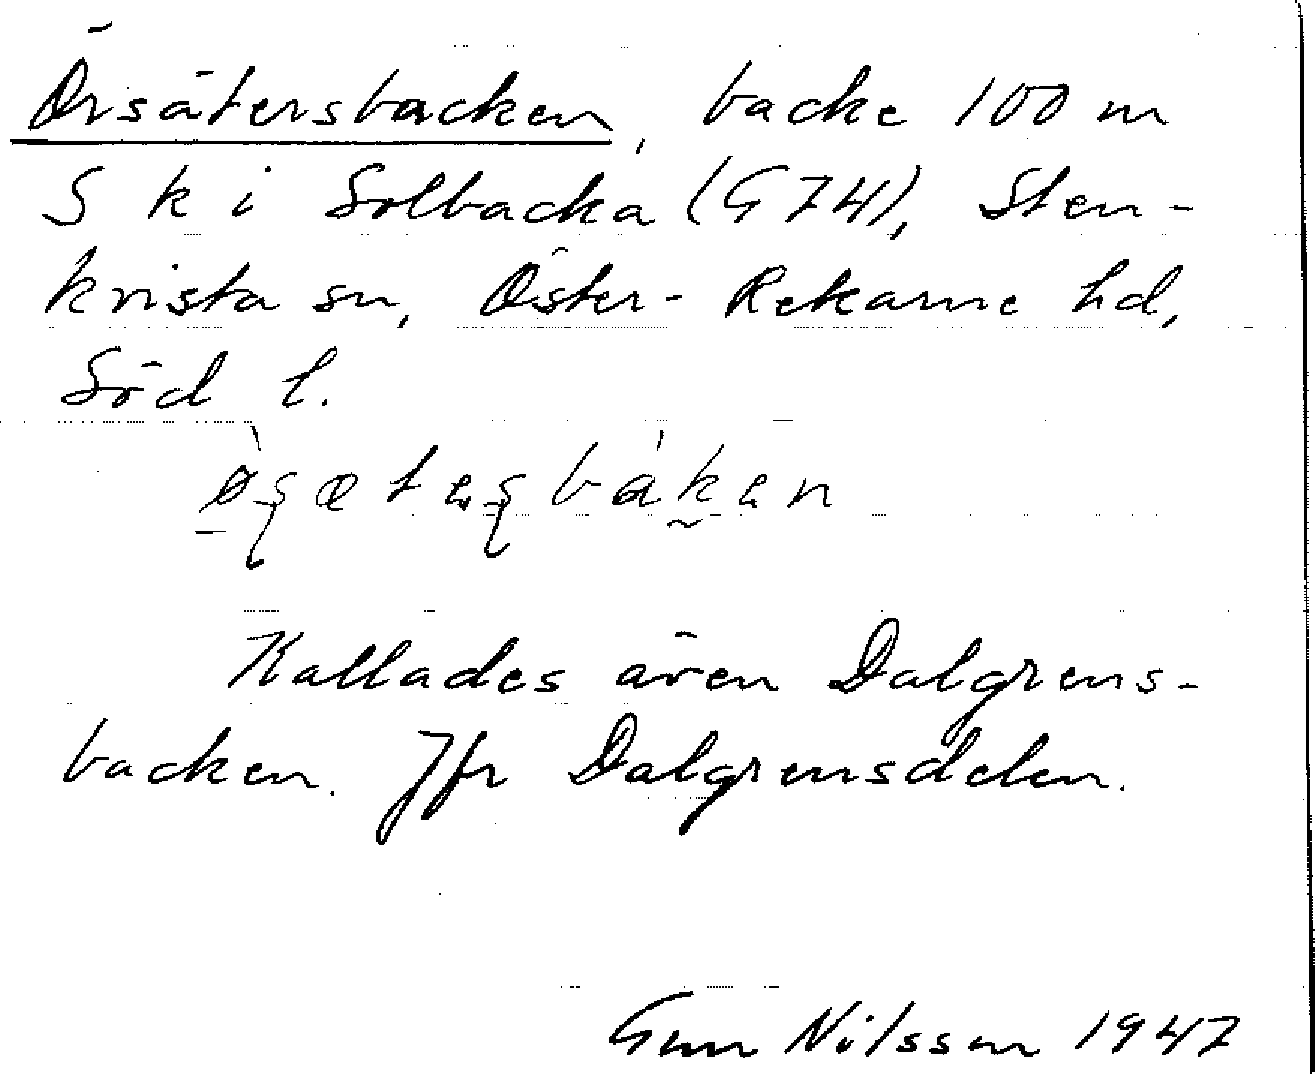 Örsätersbacken, backe 100 m
S k i Solbacka (G74), Sten-
kvista sn, Öster-Rekarne hd,
Söd l.
Kallades även Dalgrens-
backen. Jfr Dalgrensdelen.
Gun Nilsson 1947